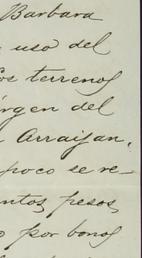 Barbara
uso del
los terrenos
árgen del
Arraijan,
poco se re-
ntos pesos,
o por bonos